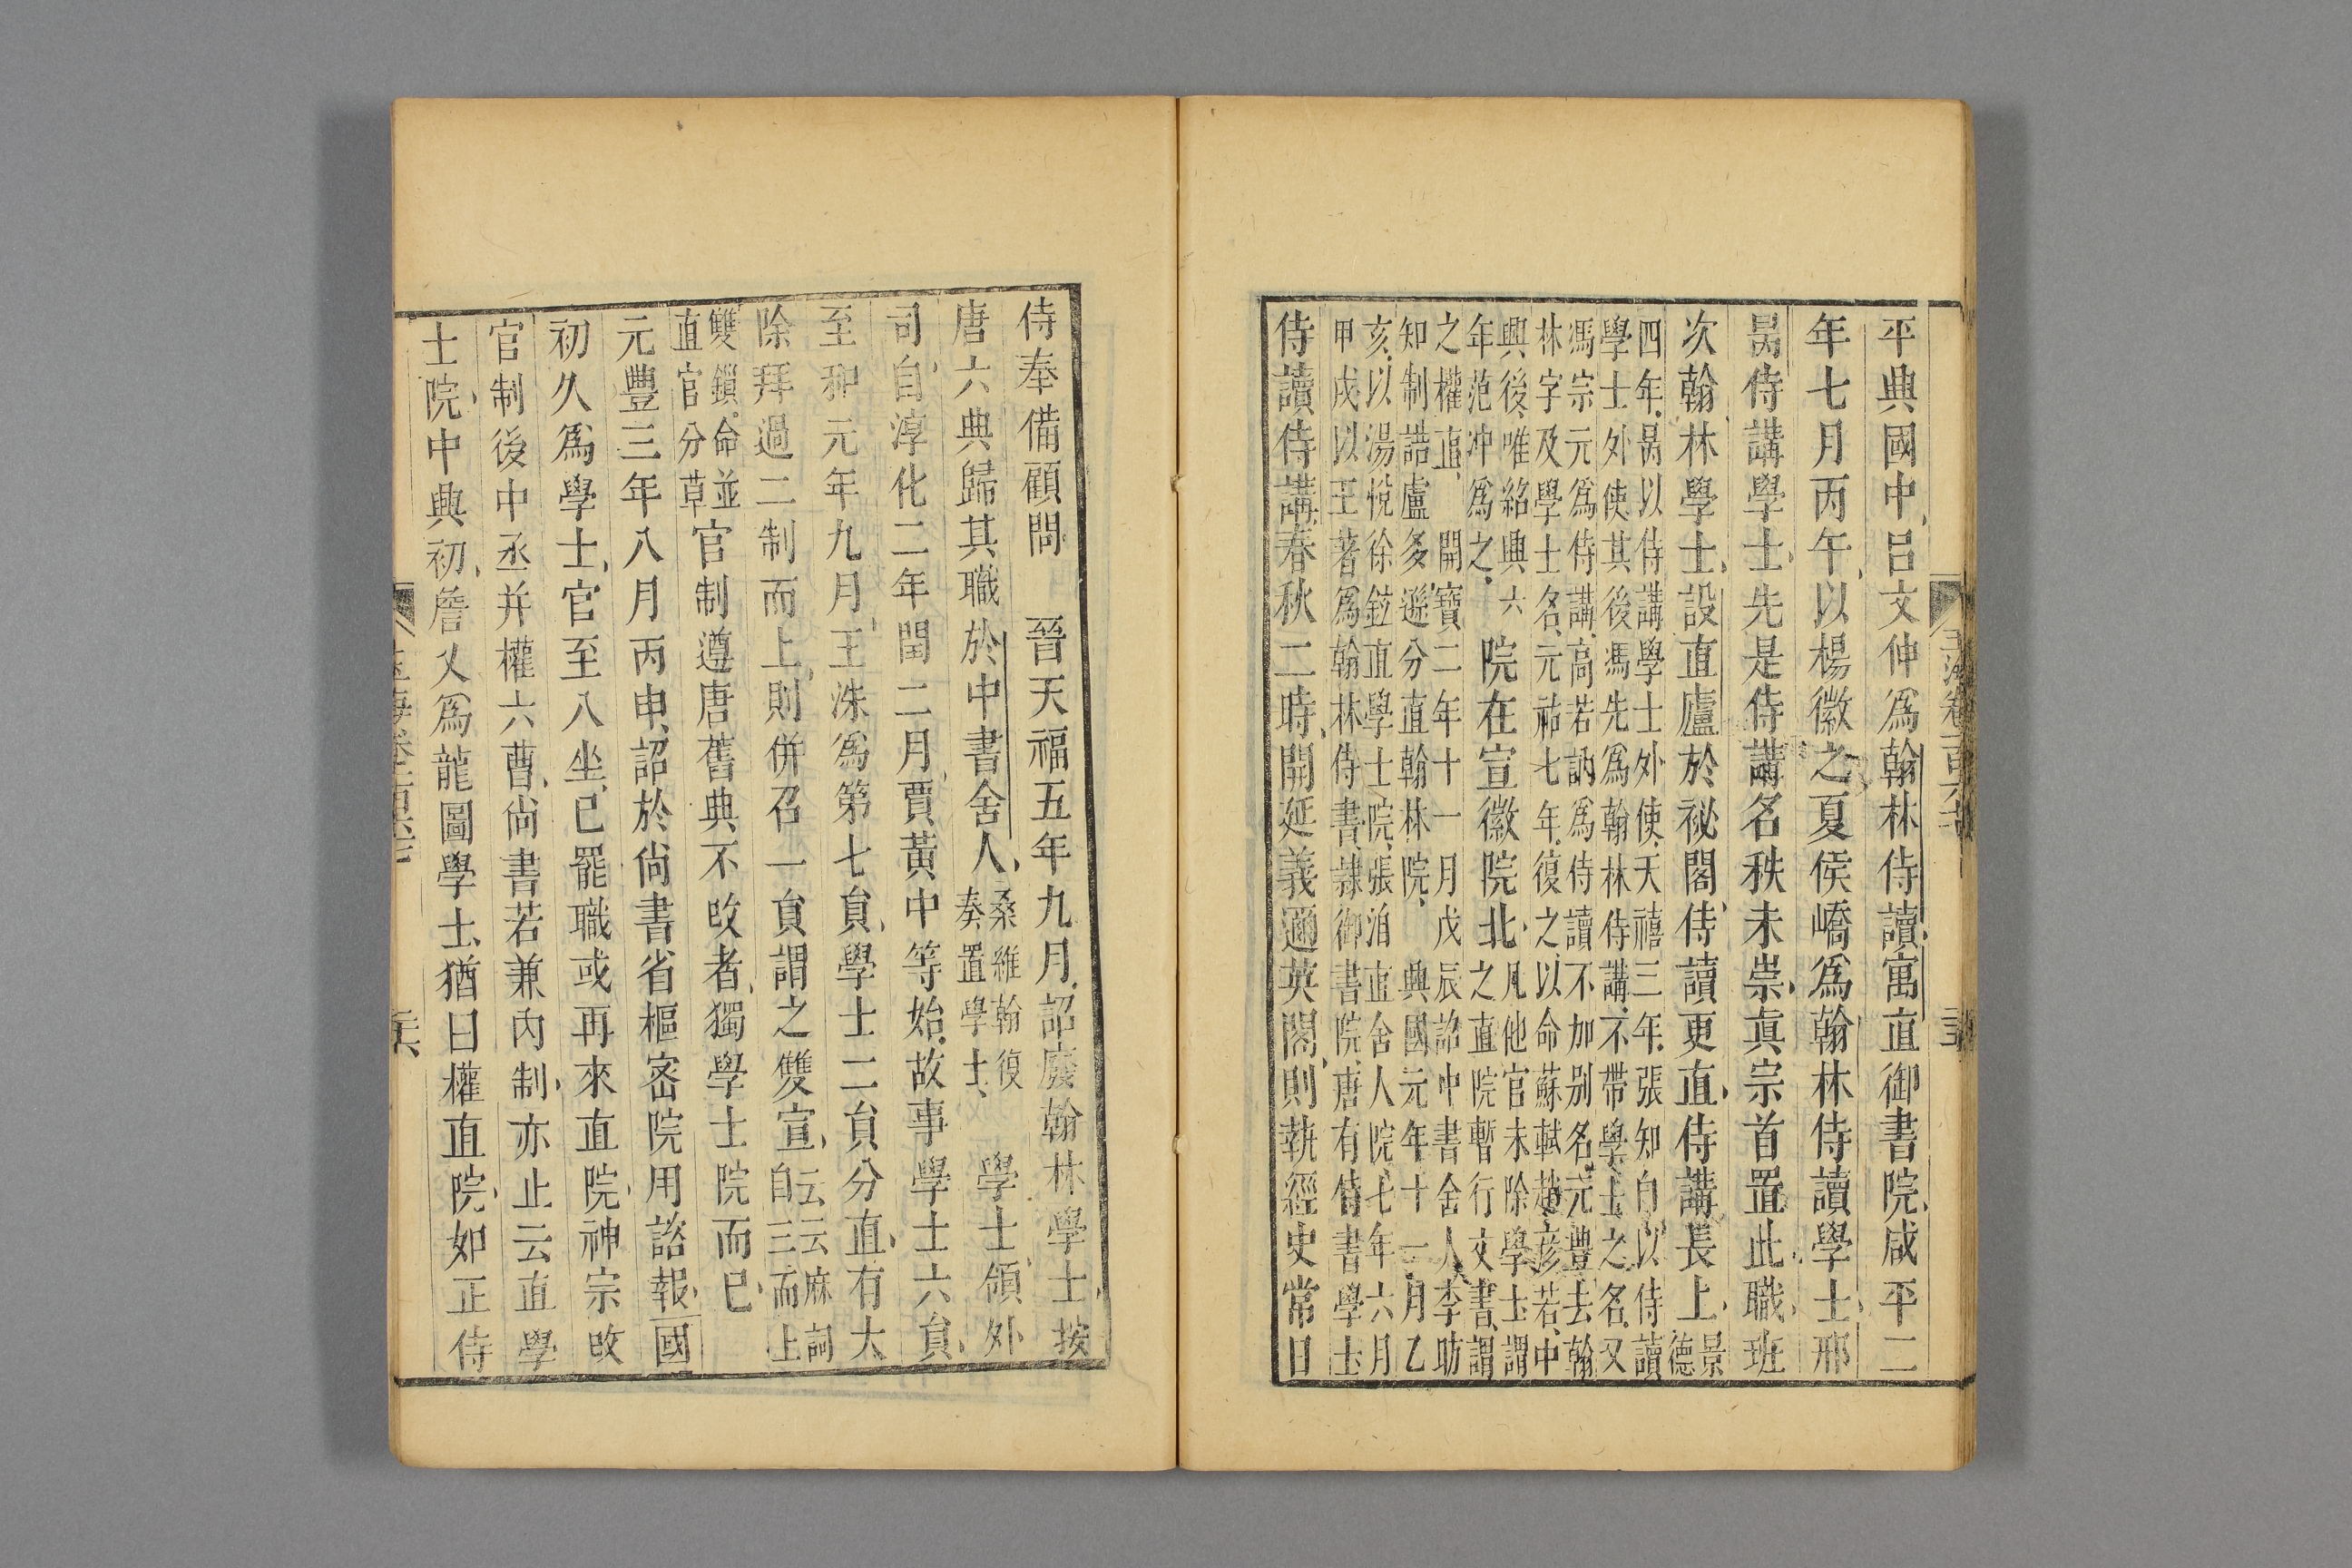 平典國中吕文仲爲翰林侍讀寓直御書院咸平二
年七月丙午以楊徽之夏侯嶠爲翰林侍讀學士邢
昺侍講學士先是侍講名秩未崇真宗首置此職班
次翰林學士設直廬於祕閣侍讀更直侍講長上景
德
四年昺以侍講學士外使天禧三年張知白以侍讀
學士外使其後馮先爲翰林侍講不帶學士之名又
馮宗元爲侍講高若訥爲侍讀不加别名元豐去翰
林字及學士名元祐七年復之以命蘇軾趙彦若中
興後唯紹興六
年范冲爲之
院在宣徽院北
凡他官未除學士謂
之直院暫行文書謂
之權直 開寶二年十一月戊辰詔中書舍人李昉
知制誥盧多遜分直翰林院 興國元年十一月乙
亥以湯悅徐鉉直學士院張洎直舍人院七年六月
甲戌以王著爲翰林侍書隷御書院唐有侍書學士
侍讀侍講春秋二時開延義邇英閣則執經史常日
侍奉備顧問 晉天福五年九月詔廢翰林學士按
唐六典歸其職於中書舍人
桑維翰復
奏置學士
學士領外
司自淳化二年閏二月賈黃中等始故事學士六貟
至和元年九月王洙爲第七貟學士二貟分直有大
除拜過二制而上則併召一貟謂之雙宣
云云麻詞
自三而上
雙鎖命並
直官分草
官制遵唐舊典不改者獨學士院而已
元豐三年八月丙申詔於尙書省樞密院用諮報國
初久爲學士官至八坐已罷職或再來直院神宗改
官制後中丞并權六曹尙書若兼内制亦止云直學
士院中興初詹乂爲龍圖學士猶曰權直院如正侍